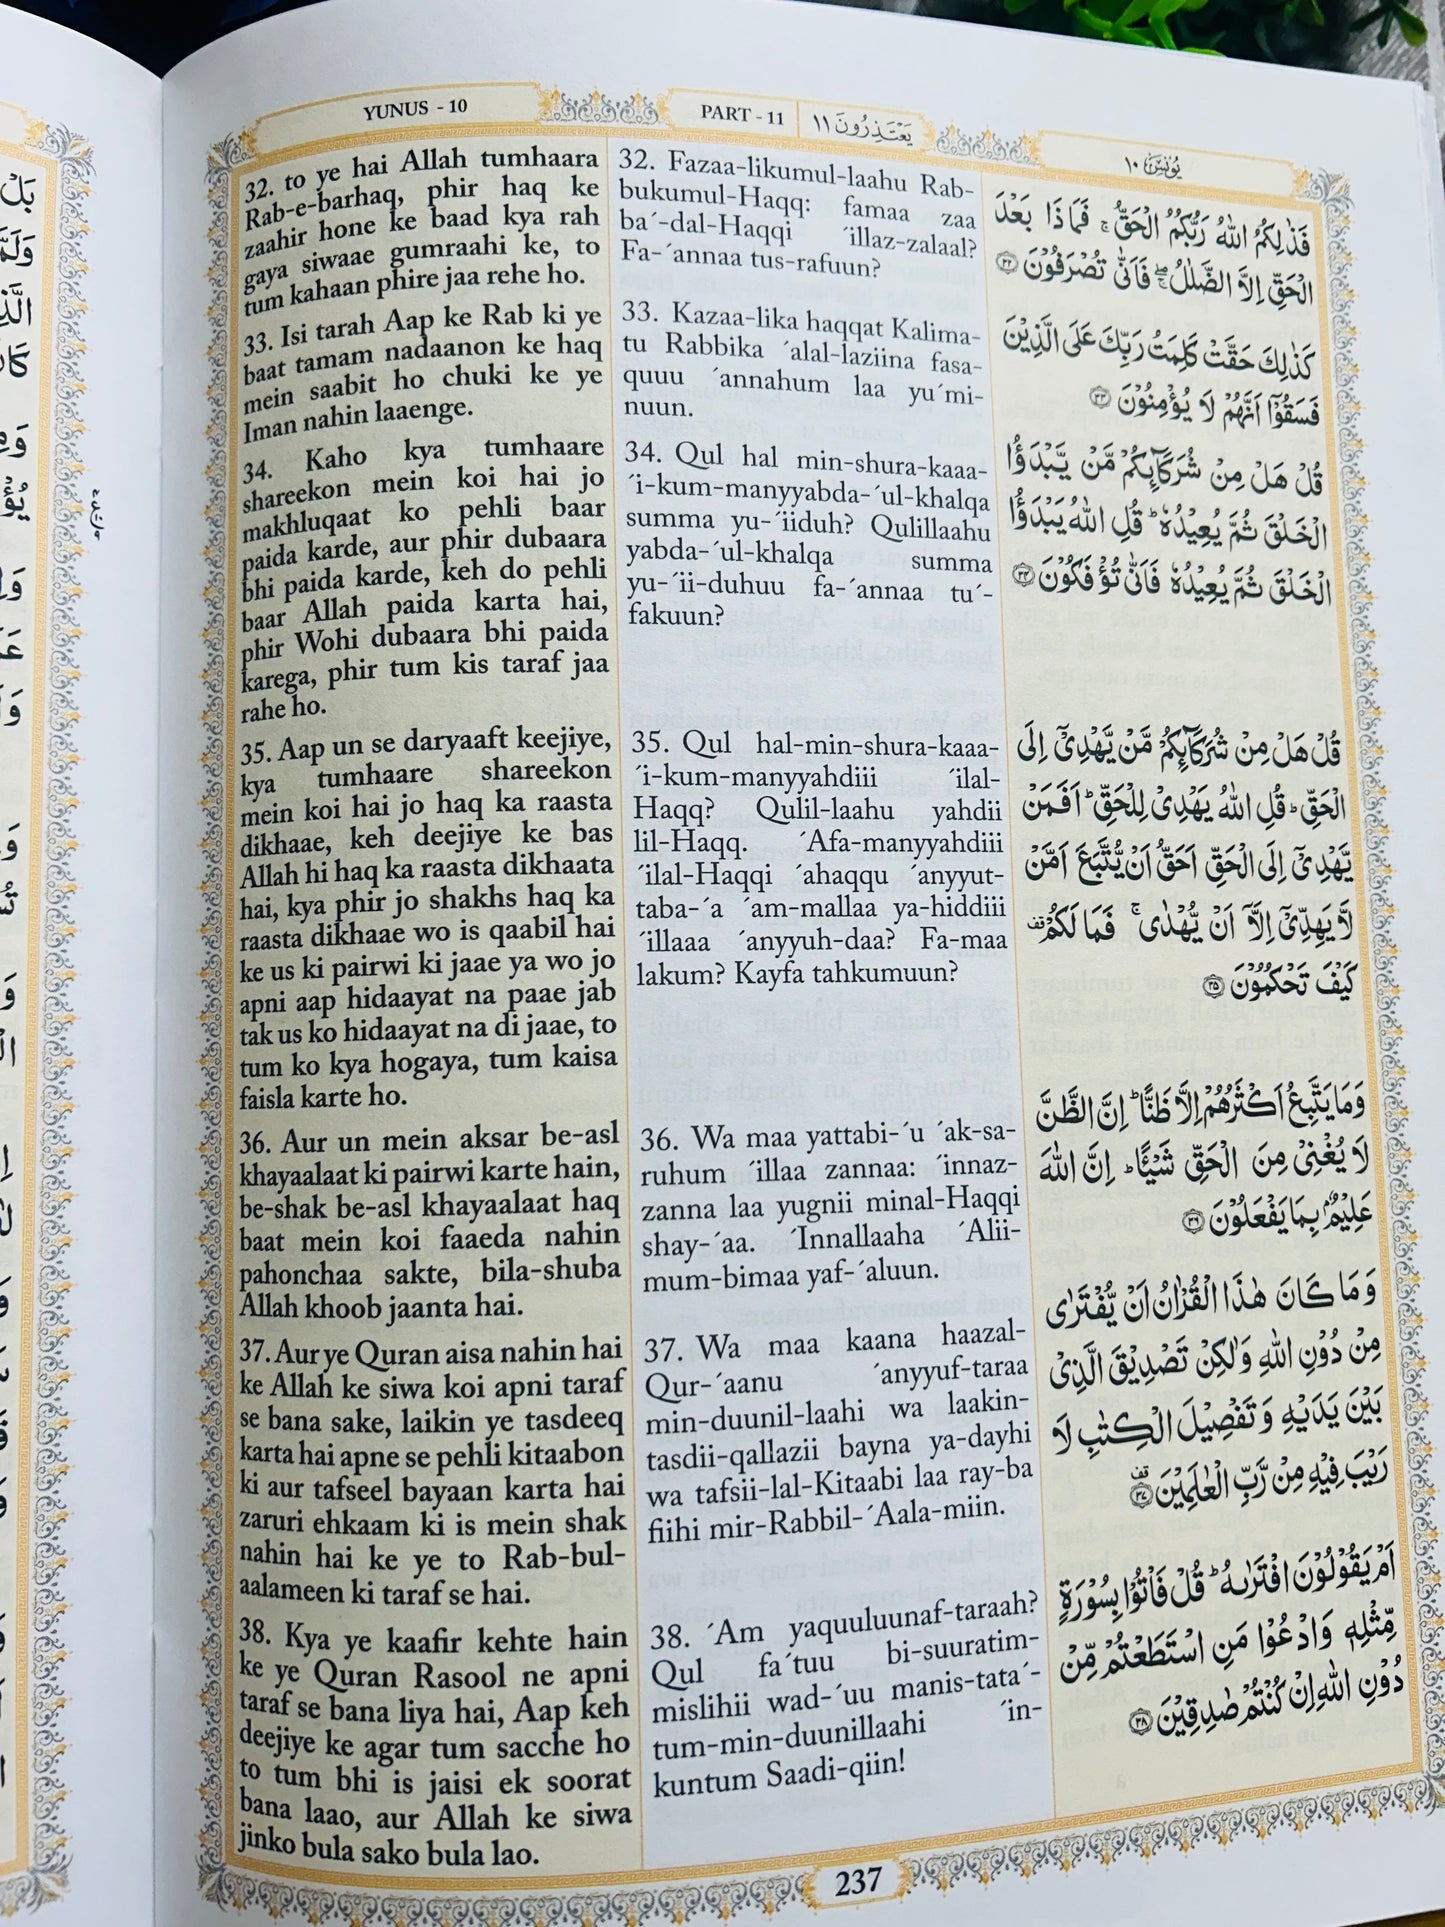 YUNUS - 10
PART - 11
يَعْتَذِرُونَ ١١
يُونُس ١٠
32. to ye hai Allah tumhaara
Rab-e-barhaq, phir haq ke
zaahir hone ke baad kya rah
gaya siwaae gumraahi ke, to
tum kahaan phire jaa rehe ho.
33. Isi tarah Aap ke Rab ki ye
baat tamam nadaanon ke haq
mein saabit ho chuki ke ye
Iman nahin laaenge.
34. Kaho kya tumhaare
shareekon mein koi hai jo
makhluqaat ko pehli baar
paida karde, aur phir dubaara
bhi paida karde, keh do pehli
baar Allah paida karta hai,
phir Wohi dubaara bhi paida
karega, phir tum kis taraf jaa
rahe ho.
35. Aap un se daryaaft keejiye,
kya tumhaare shareekon
mein koi hai jo haq ka raasta
dikhaae, keh deejiye ke bas
Allah hi haq ka raasta dikhaata
hai, kya phir jo shakhs haq ka
raasta dikhaae wo is qaabil hai
ke us ki pairwi ki jaae ya wo jo
apni aap hidaayat na paae jab
tak us ko hidaayat na di jaae, to
tum ko kya hogaya, tum kaisa
faisla karte ho.
36. Aur un mein aksar be-asl
khayaalaat ki pairwi karte hain,
be-shak be-asl khayaalaat haq
baat mein koi faaeda nahin
pahonchaa sakte, bila-shuba
Allah khoob jaanta hai.
37. Aur ye Quran aisa nahin hai
ke Allah ke siwa koi apni taraf
se bana sake, laikin ye tasdeeq
karta hai apne se pehli kitaabon
ki aur tafseel bayaan karta hai
zaruri ehkaam ki is mein shak
nahin hai ke ye to Rab-bul-
aalameen ki taraf se hai.
38. Kya ye kaafir kehte hain
ke ye Quran Rasool ne apni
taraf se bana liya hai, Aap keh
deejiye ke agar tum sacche ho
to tum bhi is jaisi ek soorat
bana laao, aur Allah ke siwa
jinko bula sako bula lao.
32. Fazaa-likumul-laahu Rab-
bukumul-Haqq: famaa zaa
ba´-dal-Haqqi ´illaz-zalaal?
Fa-´annaa tus-rafuun?
33. Kazaa-lika haqqat Kalima-
tu Rabbika ´alal-laziina fasa-
quuu ´annahum laa yu´mi-
nuun.
34. Qul hal min-shura-kaaa-
´i-kum-manyyabda-´ul-khalqa
summa yu-´iiduh? Qulillaahu
yabda-´ul-khalqa summa
yu-´ii-duhuu fa-´annaa tu´-
fakuun?
35. Qul hal-min-shura-kaaa-
´i-kum-manyyahdiii ´ilal-
Haqq? Qulil-laahu yahdii
lil-Haqq. ´Afa-manyyahdiii
´ilal-Haqqi ´ahaqqu ´anyyut-
taba-´a ´am-mallaa ya-hiddiii
´illaaa ´anyyuh-daa? Fa-maa
lakum? Kayfa tahkumuun?
36. Wa maa yattabi-´u ´ak-sa-
ruhum ´illaa zannaa: ´innaz-
zanna laa yugnii minal-Haqqi
shay-´aa. ´Innallaaha ´Alii-
mum-bimaa yaf-´aluun.
37. Wa maa kaana haazal-
Qur-´aanu ´anyyuf-taraa
min-duunil-laahi wa laakin-
tasdii-qallazii bayna ya-dayhi
wa tafsii-lal-Kitaabi laa ray-ba
fiihi mir-Rabbil-´Aala-miin.
38. ´Am yaquuluunaf-taraah?
Qul fa´tuu bi-suuratim-
mislihii wad-´uu manis-tata´-
tum-min-duunillaahi ´in-
kuntum Saadi-qiin!
فَذٰلِكُمُ اللّٰهُ رَبُّكُمُ الْحَقُّ ۚ فَمَاذَا بَعْدَ
الْحَقِّ اِلَّا الضَّلٰلُ ۖۚ فَاَنّٰى تُصْرَفُوْنَ ۝٣٢
كَذٰلِكَ حَقَّتْ كَلِمَتُ رَبِّكَ عَلَى الَّذِيْنَ
فَسَقُوْۤا اَنَّهُمْ لَا يُؤْمِنُوْنَ ۝٣٣
قُلْ هَلْ مِنْ شُرَكَآئِكُمْ مَّنْ يَّبْدَؤُا
الْخَلْقَ ثُمَّ يُعِيْدُهٗ ؕ قُلِ اللّٰهُ يَبْدَؤُا
الْخَلْقَ ثُمَّ يُعِيْدُهٗ فَاَنّٰى تُؤْفَكُوْنَ ۝٣٤
قُلْ هَلْ مِنْ شُرَكَآئِكُمْ مَّنْ يَّهْدِيْۤ اِلَى
الْحَقِّ ؕ قُلِ اللّٰهُ يَهْدِيْ لِلْحَقِّ ؕ اَفَمَنْ
يَّهْدِيْۤ اِلَى الْحَقِّ اَحَقُّ اَنْ يُّتَّبَعَ اَمَّنْ
لَّا يَهِدِّيْۤ اِلَّاۤ اَنْ يُّهْدٰى ۚ فَمَا لَكُمْ ۟
كَيْفَ تَحْكُمُوْنَ ۝٣٥
وَمَا يَتَّبِعُ اَكْثَرُهُمْ اِلَّا ظَنًّا ؕ اِنَّ الظَّنَّ
لَا يُغْنِيْ مِنَ الْحَقِّ شَيْـًٔا ؕ اِنَّ اللّٰهَ
عَلِيْمٌۢ بِمَا يَفْعَلُوْنَ ۝٣٦
وَمَا كَانَ هٰذَا الْقُرْاٰنُ اَنْ يُّفْتَرٰى
مِنْ دُوْنِ اللّٰهِ وَلٰكِنْ تَصْدِيْقَ الَّذِيْ
بَيْنَ يَدَيْهِ وَتَفْصِيْلَ الْكِتٰبِ لَا
رَيْبَ فِيْهِ مِنْ رَّبِّ الْعٰلَمِيْنَ ۝٣٧
اَمْ يَقُوْلُوْنَ افْتَرٰىهُ ؕ قُلْ فَاْتُوْا بِسُوْرَةٍ
مِّثْلِهٖ وَادْعُوْا مَنِ اسْتَطَعْتُمْ مِّنْ
دُوْنِ اللّٰهِ اِنْ كُنْتُمْ صٰدِقِيْنَ ۝٣٨
237